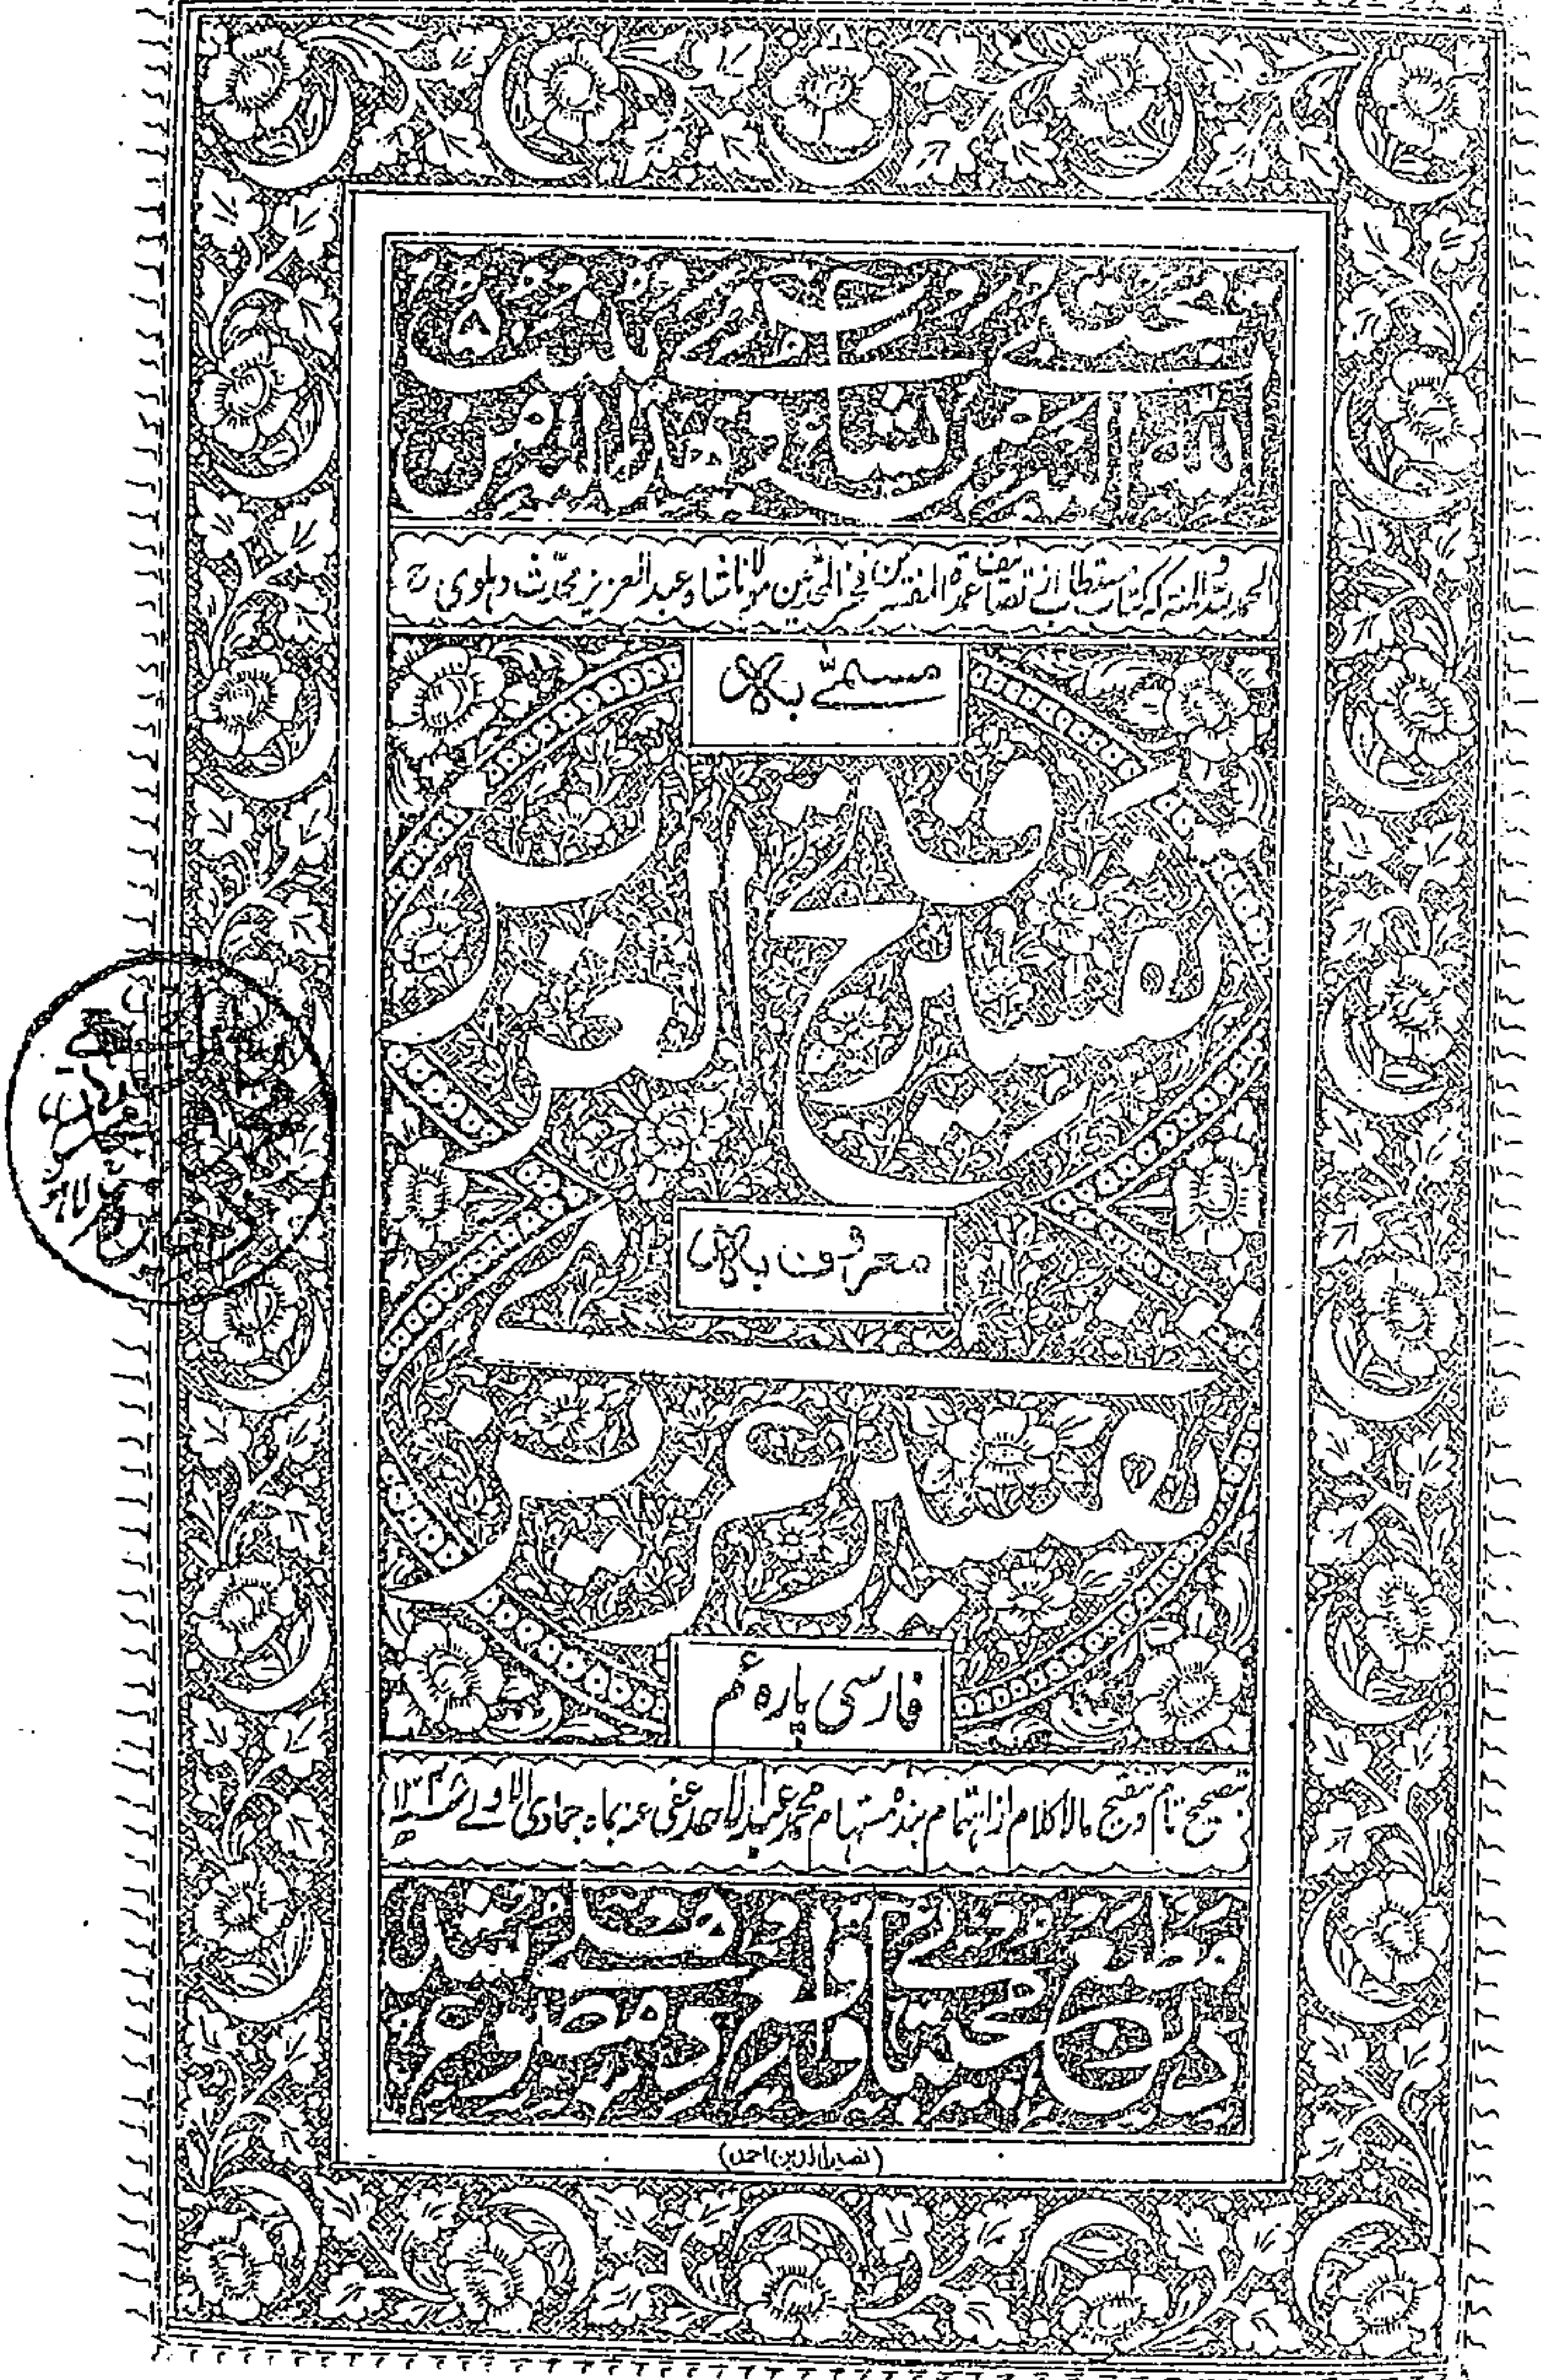 اللّٰه يجتبي اليه من يشاء ويهدي اليه من ينيب
الحمد لله والمنة که کتاب مستطاب از تصانیف عمدة المفسرین فخر المحدثین مولانا شاه عبد العزیز محدث دهلوی رح
مسمّٰے به
تفسیر فتح العزیز
معروف به
تفسیر عزیزی
فارسی پاره عم
بتصحیح تام و تنقیح مالاکلام از اهتمام بنده مستهام محمد عبد الاحد عفی عنه بماه جمادی الاولے
در مطبع مجتبائی واقع دهلی مطبوع شد
(نصیر الدین احمد)